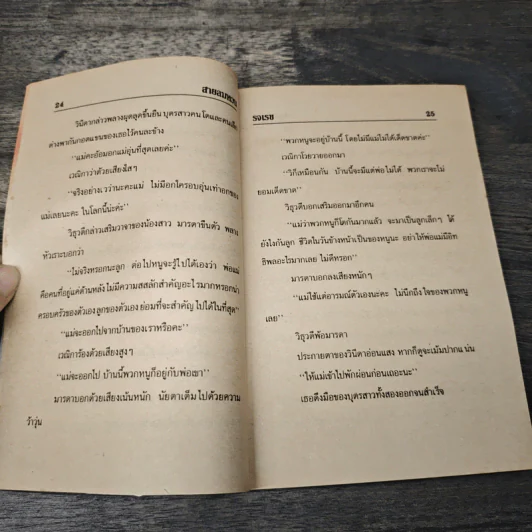 24
สายลมหวน
วินิตากล่าวพลางผุดลุกขึ้นยืน บุตรสาวคนโตและคนเล็ก
ต่างพากันกอดแขนของเธอไว้คนละข้าง
"แม่คะอ้อมอกแม่อุ่นที่สุดเลยค่ะ"
เวณิกาว่าด้วยเสียงใสๆ
"จริงอย่างเวว่านะคะแม่ ไม่มีอกใครอบอุ่นเท่าอกของ
แม่เลยนะคะ ในโลกนี้น่ะค่ะ"
วิธุวดีกล่าวเสริมวาจาของน้องสาว มารดายืนตัว พลาง
หัวเราะบอกว่า
"ไม่จริงหรอกนะลูก ต่อไปหนูจะรู้ไปได้เองว่า พ่อแม่
คือคนที่อยู่แค่ด้านหลัง ไม่มีความสลักสำคัญอะไรมากหรอกน่า
ครอบครัวของตัวเอง ลูกของตัวเอง ย่อมที่จะสำคัญ ไปได้ในที่สุด"
"แม่จะออกไปจากบ้านของเราหรือคะ"
เวณิการ้องด้วยเสียงสูงๆ
"แม่จะออกไป บ้านนี้พวกหนูก็อยู่กับพ่อเขา"
มารดาบอกด้วยเสียงเน้นหนัก นัยตาเต็มไปด้วยความ
ว้าวุ่น
รจเรข
25
"พวกหนูจะอยู่บ้านนี้ โดยไม่มีแม่ไม่ได้เด็ดขาดค่ะ"
เวณิกาโวยวายออกมา
"วิก็เหมือนกัน บ้านนี้จะมีแต่พ่อไม่ได้ พวกเราจะไม่
ยอมเด็ดขาด"
วิธุวดีบอกเสริมออกมาอีกคน
"แม่ว่าพวกหนูก็โตกันมากแล้ว จะมาเป็นลูกเล็กๆ ได้
ยังไงกันลูก ชีวิตในวันข้างหน้าเป็นของหนูนะ อย่าให้พ่อแม่มีอิท
ธิพลอะไรมากเลย ไม่ดีหรอก"
มารดาบอกลงเสียงหนักๆ
"แม่ใช้แต่อารมณ์ตัวเองนะคะ ไม่นึกถึงใจของพวกหนู
เลย"
วิธุวดีพ้อมารดา
ประกายตาของวินิตาอ่อนแสง หากก็ดูจะเม้มปากแน่น
"ให้แม่เข้าไปพักผ่อนก่อนเถอะนะ"
เธอดึงมือของบุตรสาวทั้งสองออกจนสำเร็จ